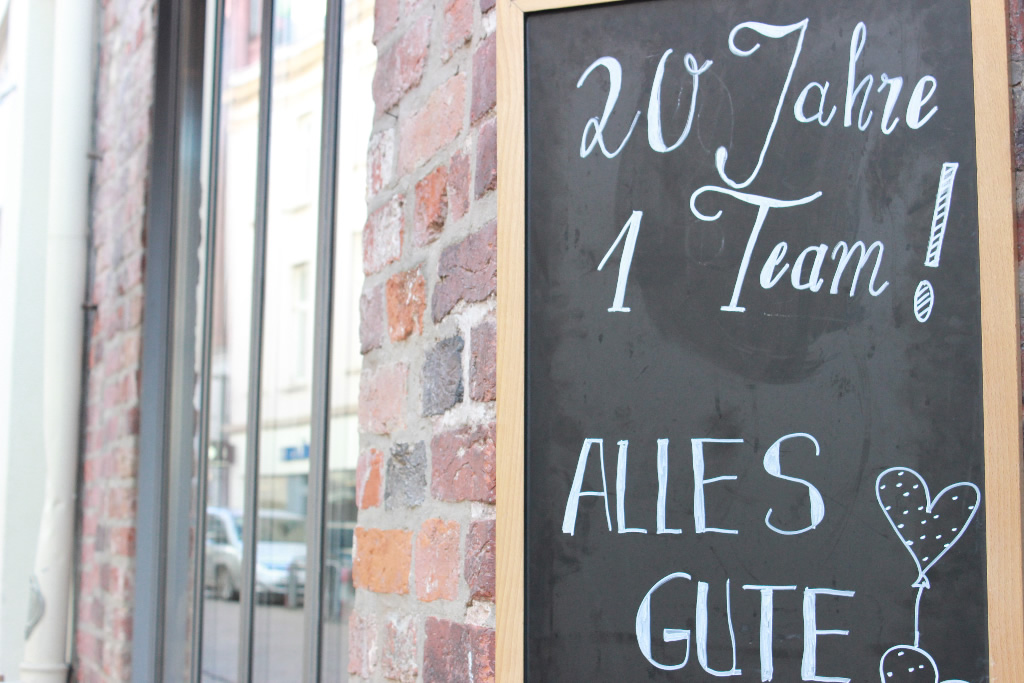 20 Jahre
1 Team!
ALLES
GUTE